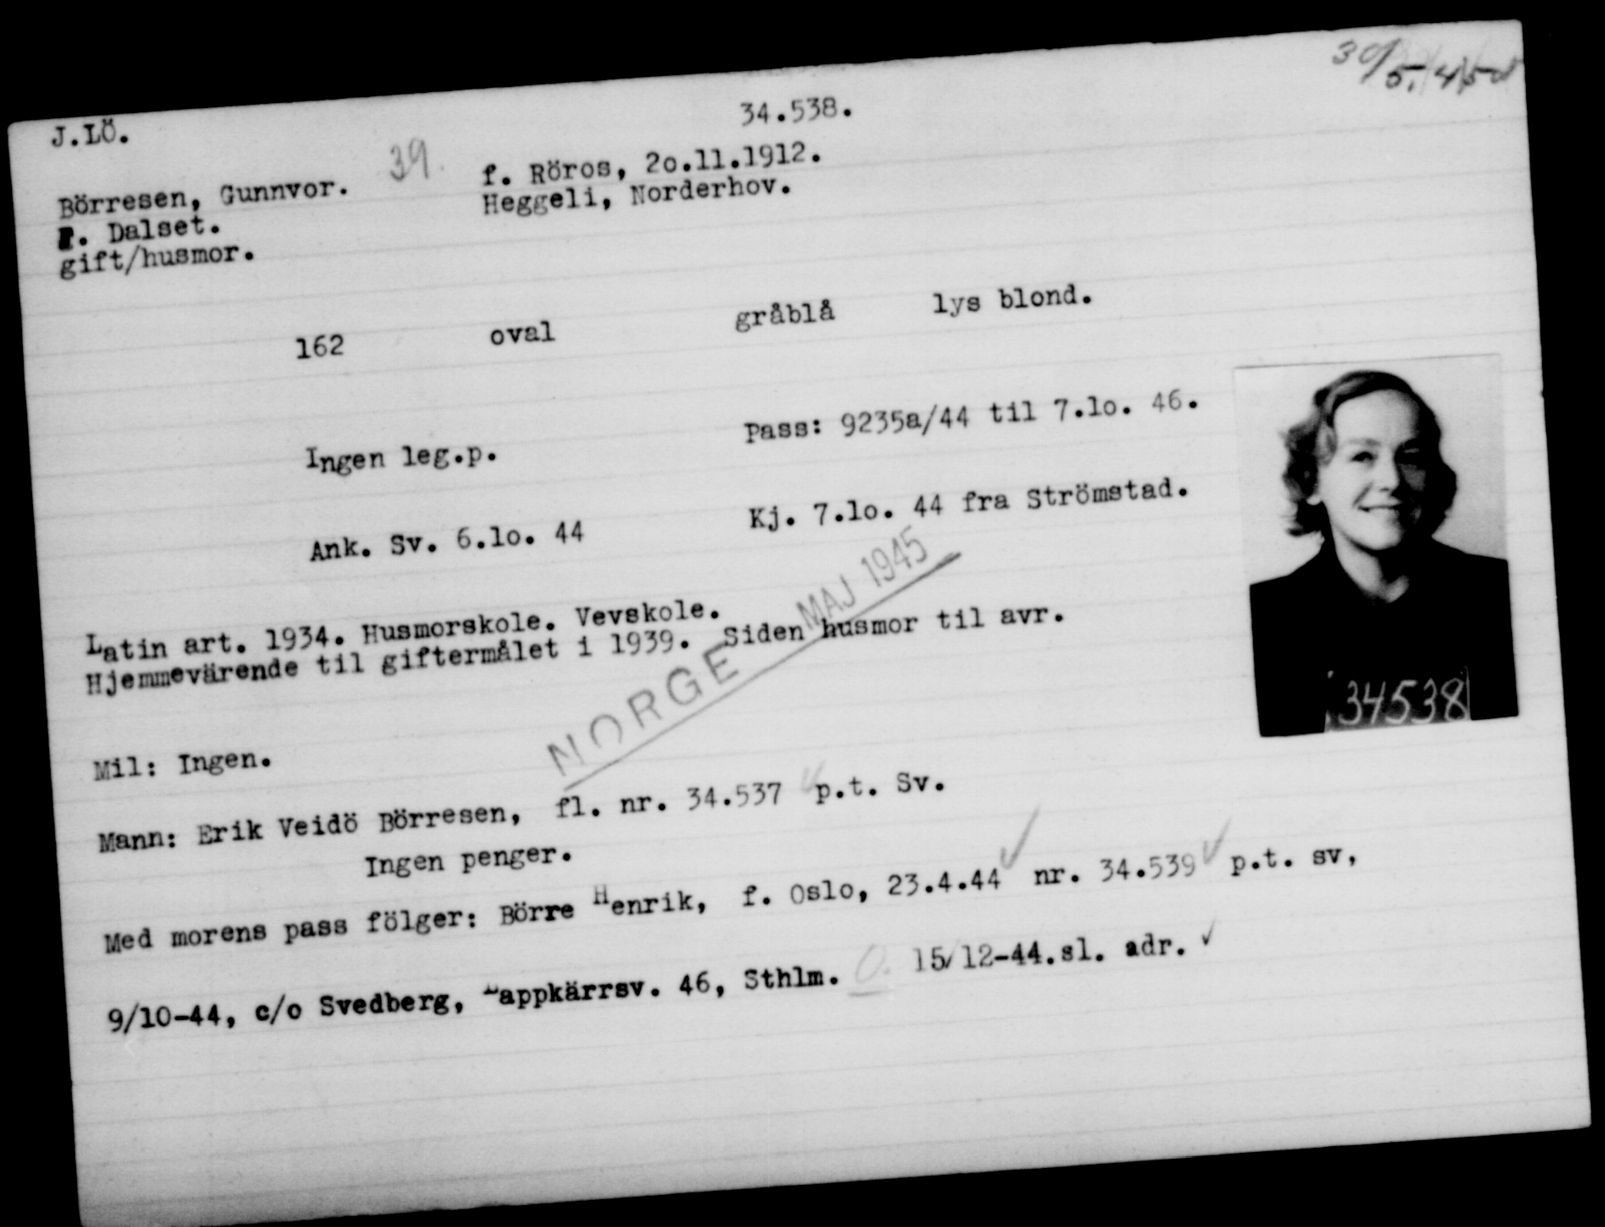 30/5. 45
J.LÖ.
34.538.
39.
Börresen, Gunnvor.
f. Röros, 2o.11.1912.
. Dalset.
Heggeli, Norderhov.
gift/husmor.
162 oval gråblå lys blond.
Ingen leg.p.
Pass: 9235a/44 til 7.lo. 46.
Ank. Sv. 6.lo. 44
Kj. 7.lo. 44 fra Strömstad.
NORGE MAJ 1945
Latin art. 1934. Husmorskole. Vevskole.
Hjemmevärende til giftermålet i 1939. Siden husmor til avr.
34538
Mil: Ingen.
Mann: Erik Veidö Börresen, fl. nr. 34.537 p.t. Sv.
Ingen penger.
Med morens pass fölger: Börre Henrik, f. Oslo, 23.4.44 nr. 34.539 p.t. sv,
9/10-44, c/o Svedberg, Lappkärrsv. 46, Sthlm. 15/12-44.sl. adr.